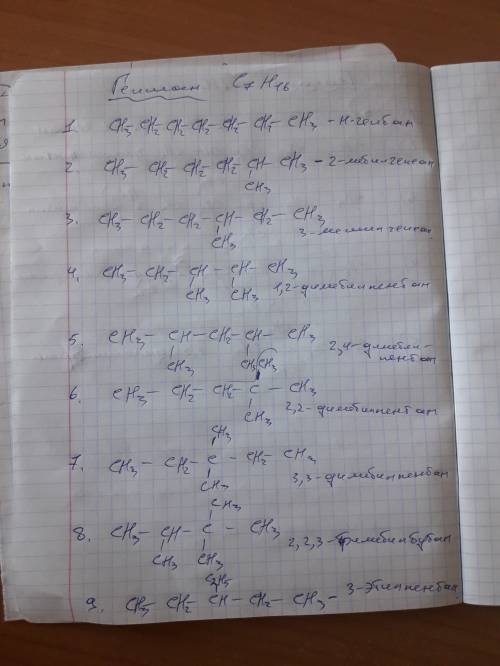 Гептан C7H16
1. CH3-CH2-CH2-CH2-CH2-CH2-CH3 - н-гептан
2. CH3-CH2-CH2-CH2-CH-CH3 - 2-метилгексан
CH3
3. CH3-CH2-CH2-CH-CH2-CH3
CH3
3-метилгексан
4. CH3-CH2-CH-CH-CH3
CH3 CH3
1,2-диметилпентан
5. CH3-CH-CH2-CH-CH3
CH3 CH3
2,4-диметил-
пентан
CH3
6. CH3-CH2-CH2-C-CH3
CH3
2,2-диметилпентан
CH3
7. CH3-CH2-C-CH2-CH3
CH3
3,3-диметилпентан
CH3
8. CH3-CH-C-CH3
CH3 CH3
2,2,3-триметилбутан
C2H5
9. CH3-CH2-CH-CH2-CH3-
3-этилпентан